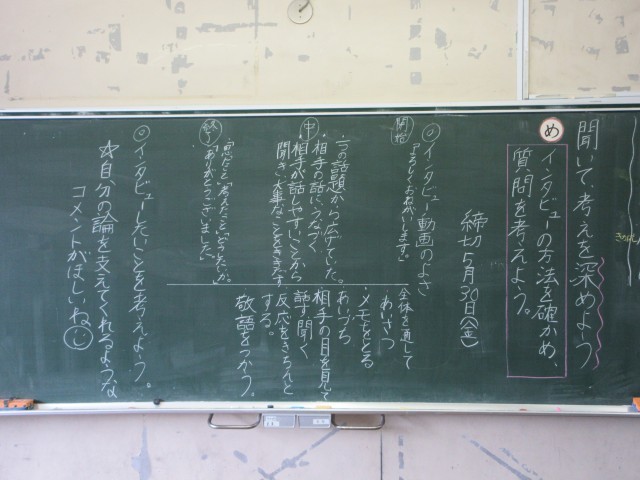 聞いて、考えを深めよう
め
インタビューの方法を確かめ、
質問を考えよう。
締切5月30日(金)
◎インタビュー動画のよさ
開始
「よろしくおねがいします。」
中
・一つの話題から広げていた。
・相手の話につなづく
・相手が話しやすいことから
聞き、大事なことをききだす
終
・思ったこと、考えたこと
「ありがとうございました。」
全体を通して
・あいさつ
・メモをとる
・あいづち
・相手の目を見て
話す・聞く
・反応をきちんと
する。
・敬語をつかう。
◎インタビューしたいことを考えよう。
☆自分の論を支えてくれるような
コメントがほしいね